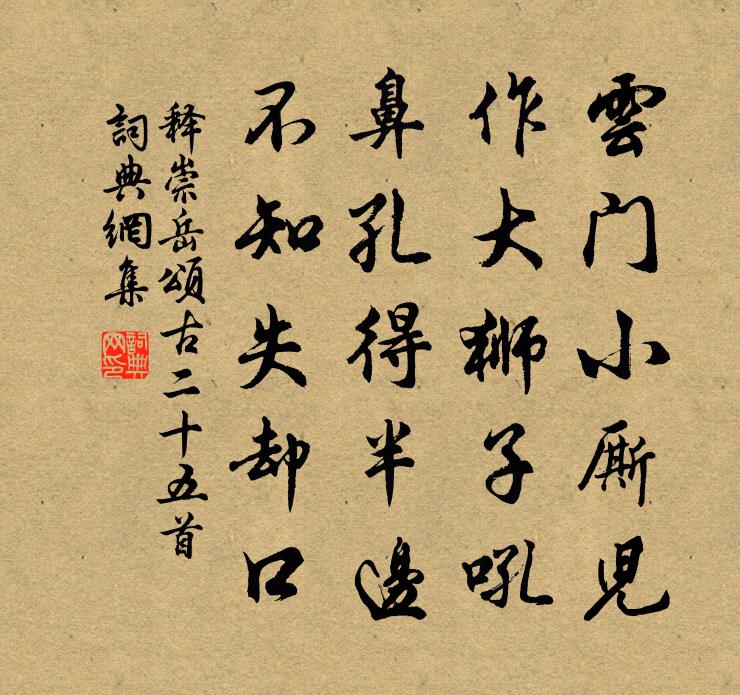 雲门小厮児
作大獅子吼
鼻孔得半邊
不知失却口
释崇岳頌古二十五首
詞典網集
詞典网印